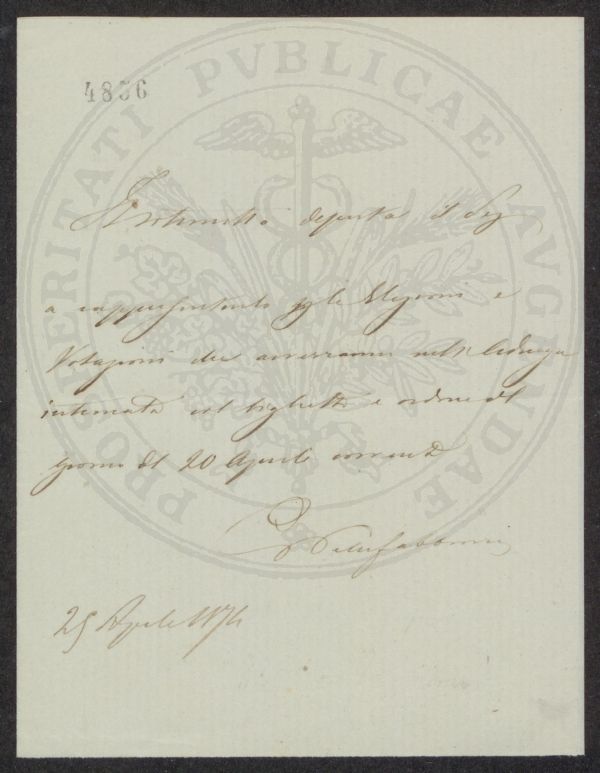 4836
PROSPERITATI PVBLICAE AVGENDAE
Il sottoscritto deputa il Sig
a rappresentarlo per le Elezioni e
Votazioni che avverranno nell'Adunza
intimata col biglietto e ordine del
giorno del 20 Aprile corrente
25 Aprile 1874